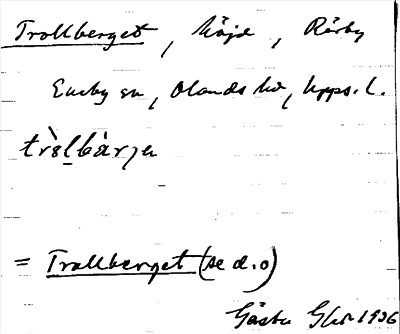 Trollberget, höjd, Rörby
Eneby sn, Olands hd, Upps. l.
trὸl̠bàrjɛ
= Trollberget (se d.o)
Gösta 1936